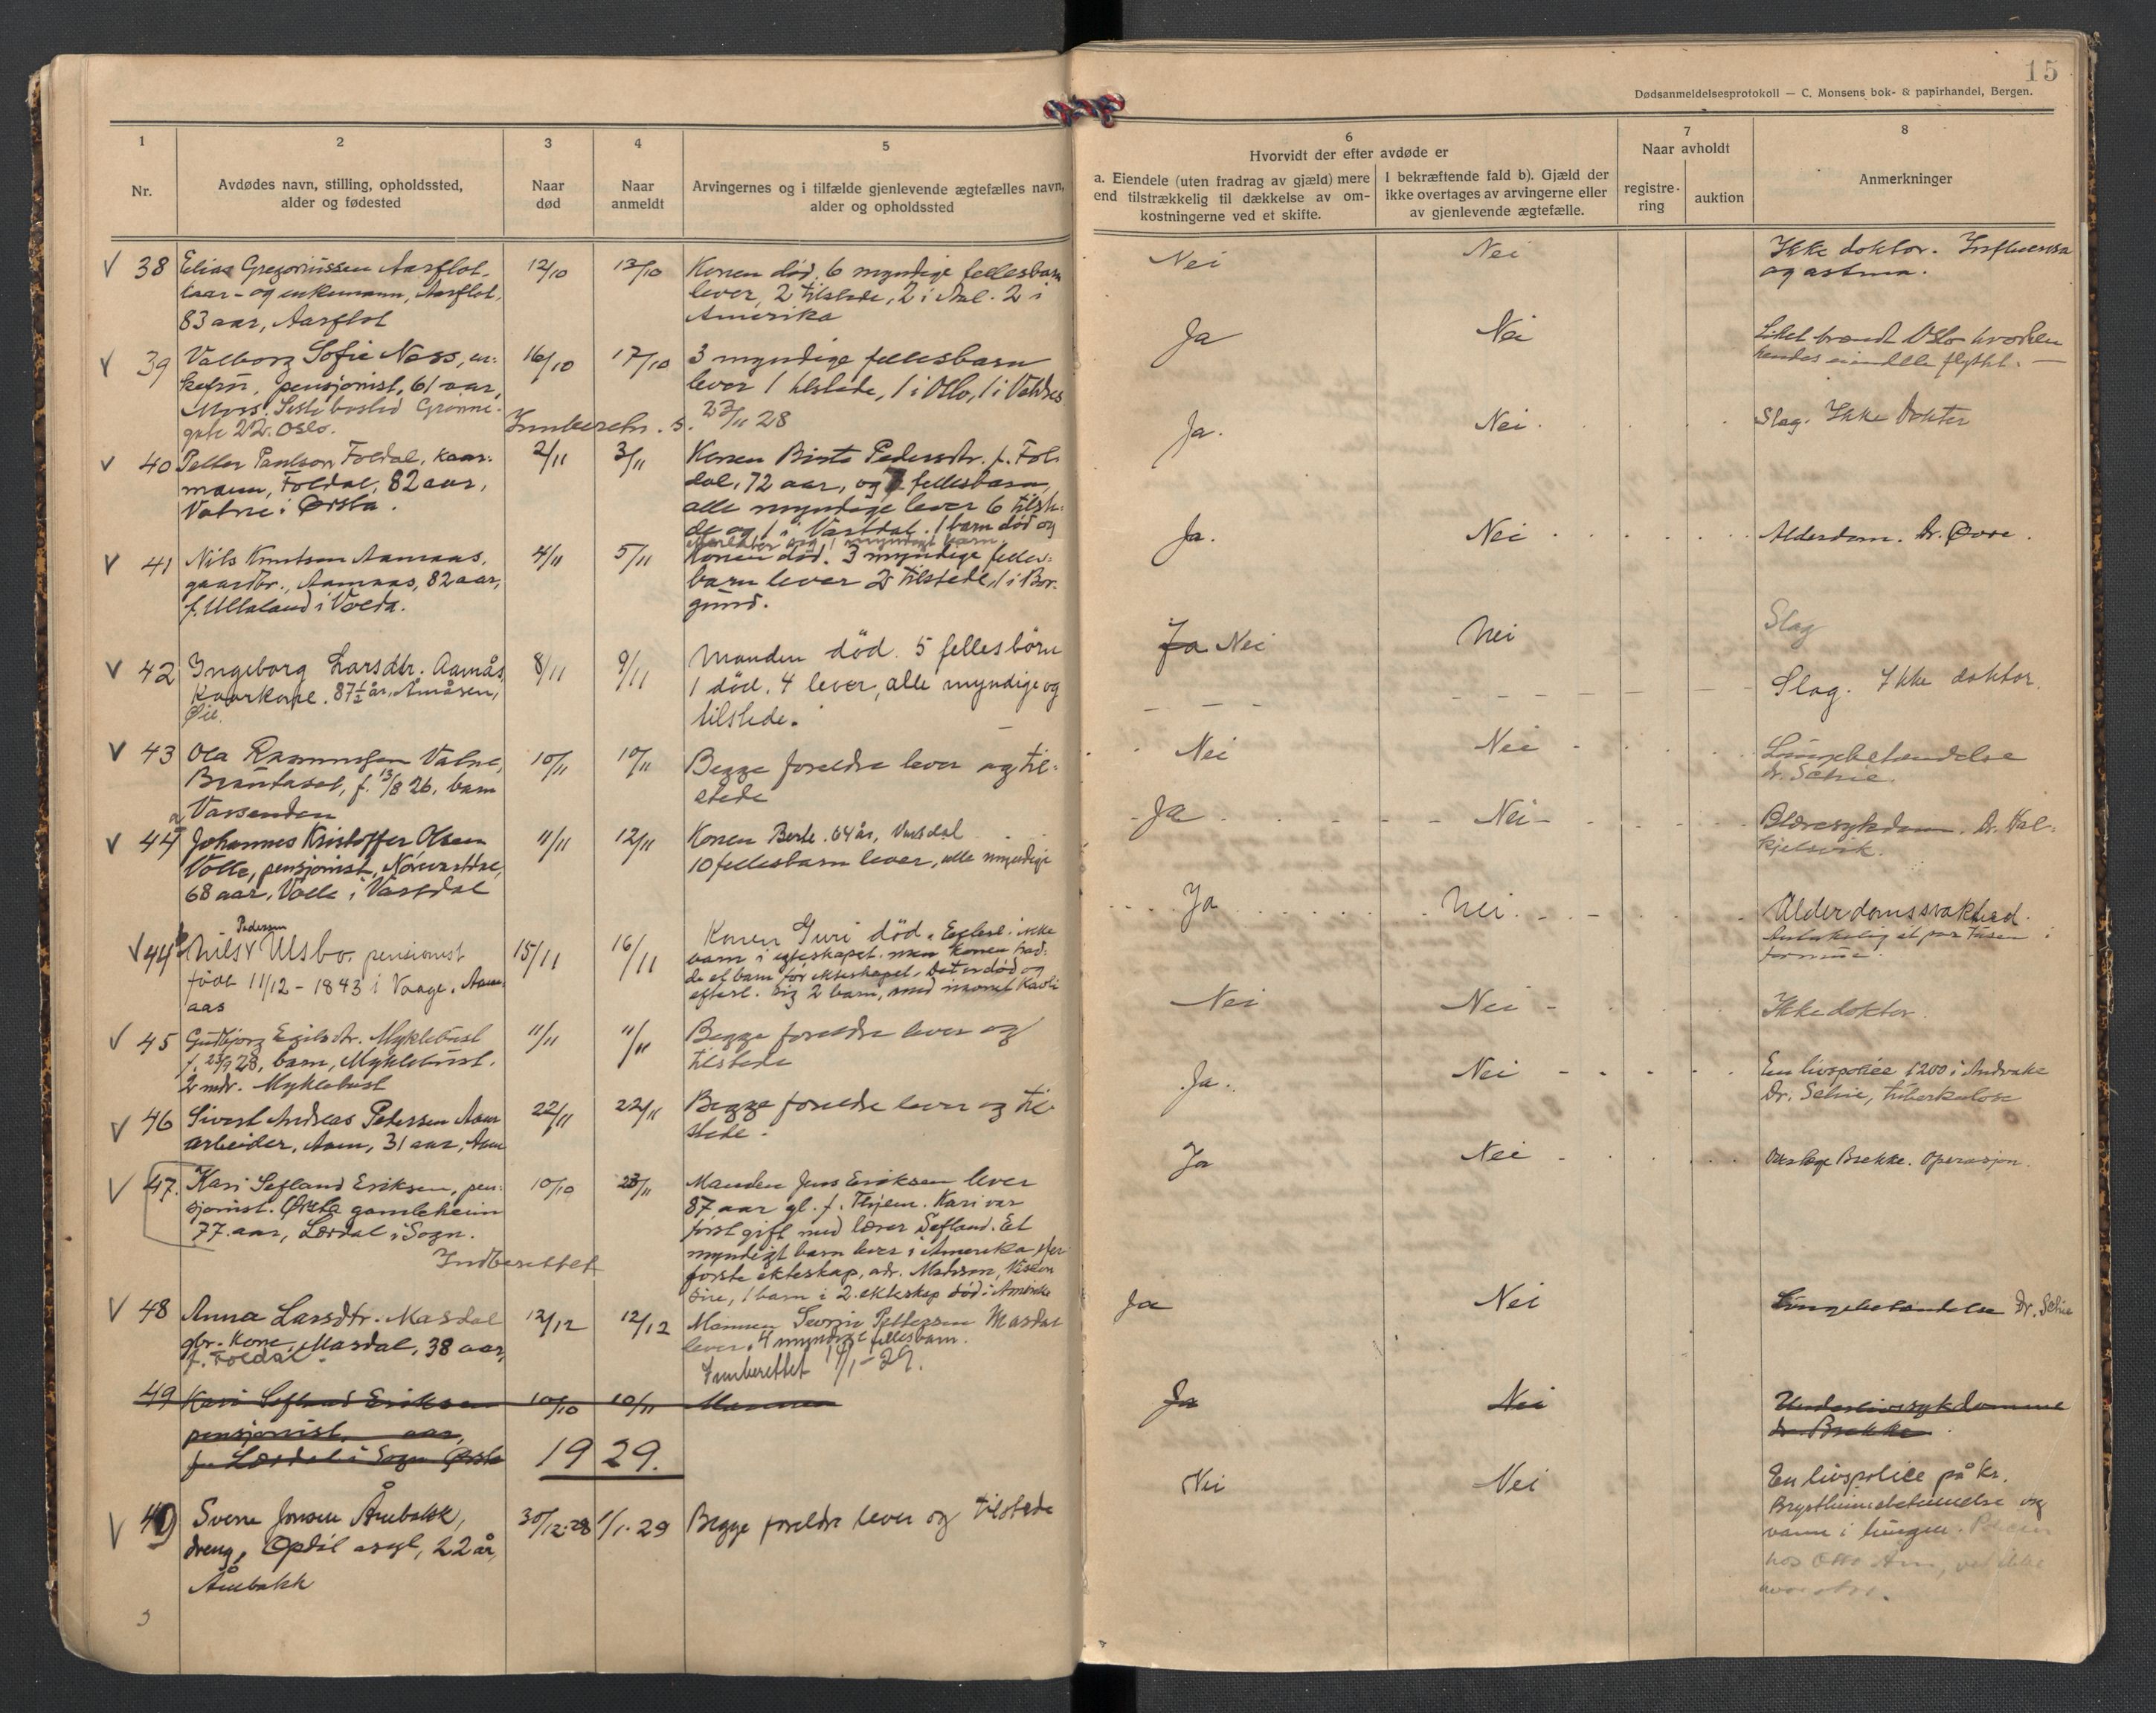 15
Dødsanmeldelsesprotokoll — C. Monsens bok- & papirhandel, Bergen.
1
2
3
4
5
6
7
8
Nr.
Avdødes navn, stilling, opholdssted,
alder og fødested
Naar
død
Naar
anmeldt
Arvingernes og i tilfælde gjenlevende ægtefælles navn,
alder og opholdssted
Hvorvidt der efter avdøde er
a. Eiendele (uten fradrag av gjæld) mere
end tilstrækkelig til dækkelse av om-
kostningerne ved et skifte.
I bekræftende fald b). Gjæld der
ikke overtages av arvingerne eller
av gjenlevende ægtefælle.
Naar avholdt
registre-
ring
auktion
Anmerkninger
V 38 Elias Gregoriussen Aarflot,
kaar- og enkemann, Aarflot,
83 aar, Aarflot
12/10
13/10
Konen død. 6 myndige fellesbarn
lever, 2 tilstede, 2 i Aal. 2 i
Amerika
Nei
Nei
Ikke doktor. Influensa
og astma.
V 39 Valborg Sofie Ness, en-
kefru, pensjonist, 61 aar,
Moss. Siste bosted Grønne-
gate 22. Oslo.
16/10
17/10
3 myndige fellesbarn
lever 1 tilstede, 1 i Oslo, 1 i Valdres
Innberettn. s. 27/11 28
Ja
Nei
Liket brændt Oslo hvorhen
V 40 Petter Paulson Foldal, kaar-
mann, Foldal, 82 aar,
Vatne i Ørsta.
2/11
3/11
Konen Birte Pedersdtr. f. Fol-
dal, 72 aar, og 7 fellesbarn,
alle myndige lever 6 tilste-
de og 1 i Vartdal. 1 barn død og
efterlater sig 1 myndigt barn.
Ja.
Nei
Slag. Ikke Dokter
V 41 Nils Knutson Aamaas,
gaardbr., Aamaas, 82 aar,
f. Ullaland i Volda.
4/11
5/11
Konen død. 3 myndige felles-
barn lever 2 tilstede, 1 i Bor-
gund.
Ja.
Nei
Alderdom. Dr. Øvre.
V 42 Ingeborg Larsdtr. Aamås,
Kaarkone. 87½ år, Åmåsen,
Øie.
8/11
9/11
Manden død. 5 fellesbörn
1 död, 4 lever, alle myndige og
tilstede.
Ja Nei
Nei
Slag
Slag. Ikke doktor.
V 43 Ola Rasmussen Vatne,
Brautaset, f. 13/8 26, barn
Vassenden
10/11
10/11
Begge foreldre lever og til-
stede
Nei
Nei
Lungebetendelse
dr. Schie.
V 44a Johannes Kristoffer Olsen
Volle, pensjonist,
68 aar, Volle i Vartdal
11/11
12/11
Konen Berte. 64 år,
10 fellesbarn lever, alle myndige
Ja
Nei
Blæresykdom. Dr. Kal-
V 44b Nils Pedersen Ulsbo. pensionist
född 11/12 - 1843 i Vaage. Aam-
aas
15/11
16/11
Konen Guri död. Efterl. ikke
barn i egteskapet. men konen had-
de et barn før ekteskapet. Det er død og
efterl. sig 2 barn, med navnet Kavli
Ja
Nei
Alderdomssvakhed.
V 45 Gudbjørg Egilsdtr. Myklebust
f. 23/9 28, barn, Myklebust.
2 mdr. Myklebust
11/11
11/11
Begge foreldre lever og
tilstede
Nei
Nei
Ikke doktor.
V 46 Sivert Andreas Petersen Aam
arbeider, Aam, 31 aar, Aam
22/11
22/11
Begge foreldre lever og til-
stede.
Ja.
Nei
En livspolice 1200 i Andvake
Dr. Schie, tuberkulose
V 47. Kari Sefland Eriksen, pen-
sjonist. Ørsta gamleheim
77 aar, Lærdal i Sogn.
Indberettet
10/10
23/11
Manden Jens Eriksen lever
87 aar gl. f. Thjem. Kari var
först gift med lærer Sefland. Et
myndigt barn lever i Amerika efter
første ekteskap, adr. Madison, Viscon
sin, 1 barn i 2. ekteskap död i Amerika
Ja
Nei
Overlæge Brekke. Operasjon.
V 48 Anna Larsdtr. Masdal
gbr. Kone, Masdal, 38 aar,
f. Foldal.
12/12
12/12
Mannen Georg Pettersen Masdal
lever. 4 myndige fellesbarn.
Innberettet 19/1-29.
Ja
Nei
Lungebetendelse Dr. Schie
49 Kari Sefland Eriksen
pensjonist, aar,
f. Lærdal i Sogn Ørsta
10/10
10/11
Mannen
Ja
Nei
Underlivssykdomme
dr Brekke
1929.
V 49 Sverre Jonsen Åmbakk,
dreng, Opdöl asyl, 22 år,
Åmbakk
30/12-28
1/1-29
Begge foreldre lever og tilstede
Nei
Nei
En livspolice på kr.
Brysthinnebetennelse og
vann i lungen.
hos Olav Aam, vet ikke